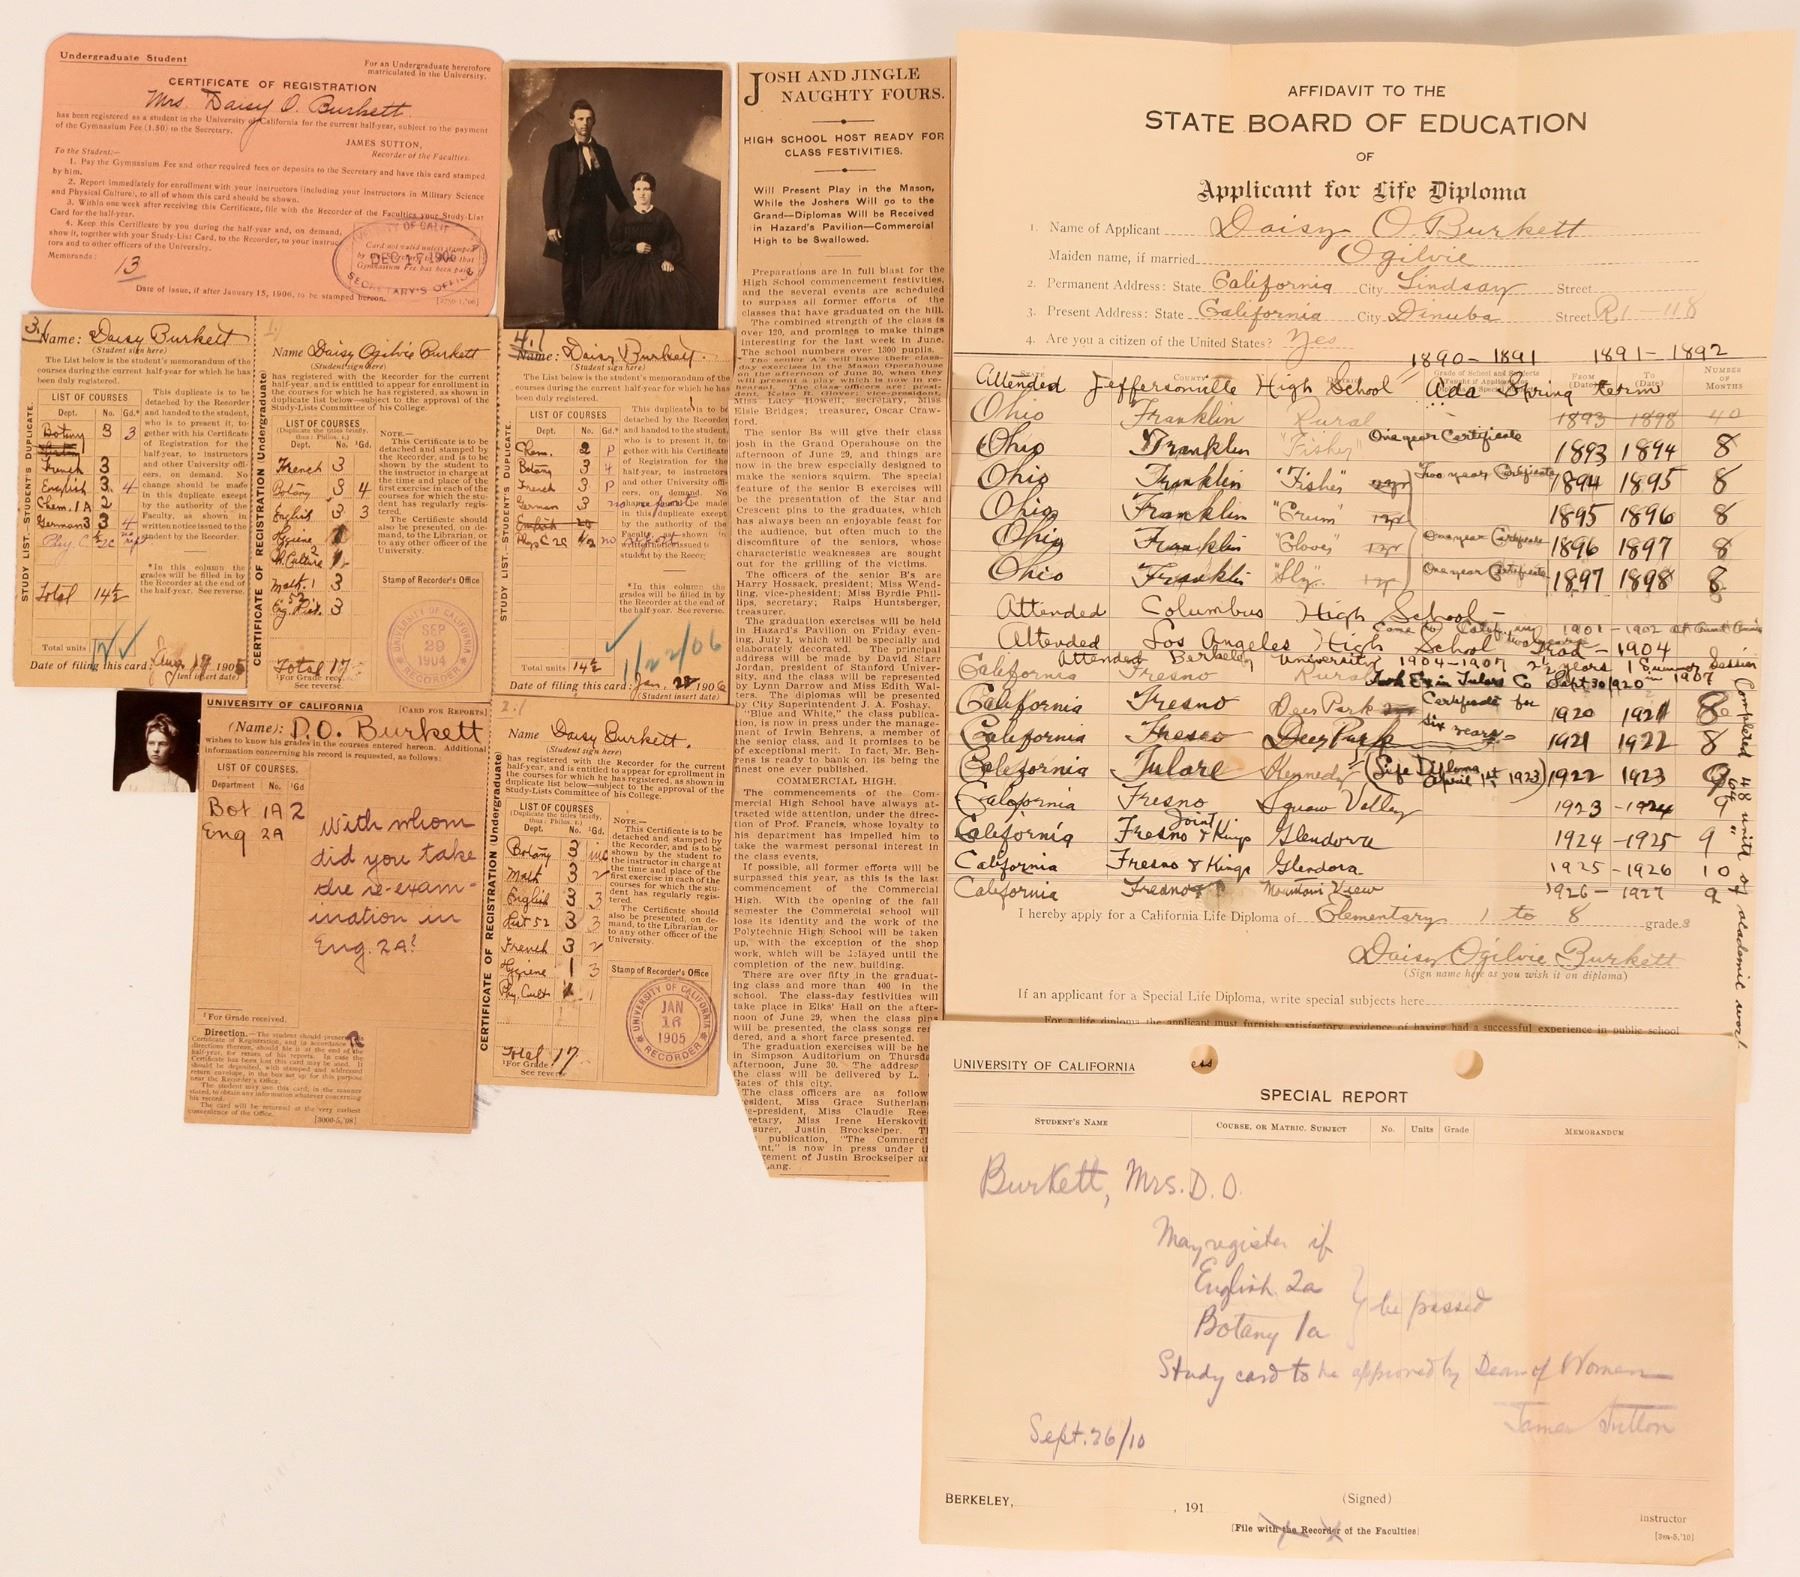 Undergraduate Student
For an Undergraduate heretofore
matriculated in the University.
CERTIFICATE OF REGISTRATION
Mrs. Daisy O. Burkett
has been registered as a student in the University of California for the current half-year, subject to the payment
of the Gymnasium Fee (1.50) to the Secretary.
JAMES SUTTON,
Recorder of the Faculties.
To the Student:—
1. Pay the Gymnasium Fee and other required fees or deposits to the Secretary and have this card stamped
by him.
2. Report immediately for enrollment with your instructors (including your instructors in Military Science
and Physical Culture), to all of whom this card should be shown.
3. Within one week after receiving this Certificate, file with the Recorder of the Faculties your Study-List
Card for the half-year.
4. Keep this Certificate by you during the half-year and, on demand,
show it, together with your Study-List Card, to the Recorder, to your instruc-
tors and to other officers of the University.
Memoranda:
13
Card not valid unless stamped
Gymnasium Fee has been paid
DEC 17 1906
SECRETARY'S OFFICE
Date of issue, if after January 15, 1906, to be stamped hereon.
3.
Name: Daisy Burkett
(Student sign here)
The List below is the student's memorandum of the
courses during the current half-year for which he has
been duly registered.
STUDY LIST. STUDENT'S DUPLICATE.
LIST OF COURSES
Dept. No. Gd.*
Botany 3 3
French 3
English 3 4
Chem. 1A 2
German 3 3 4
Phy. C 2c
Total 14½
Total units
This duplicate is to be
detached by the Recorder
and handed to the student,
who is to present it, to-
gether with his Certificate
of Registration for the
half-year, to instructors
and other University offi-
cers, on demand. No
change should be made
in this duplicate except
by the authority of the
Faculty, as shown in
written notice issued to the
student by the Recorder.
*In this column the
grades will be filled in by
the Recorder at the end of
the half-year. See reverse.
Date of filing this card: Aug 19 1905
(Student insert date)
CERTIFICATE OF REGISTRATION (Undergraduate)
Name Daisy Ogilvie Burkett
(Student sign here)
has been registered with the Recorder for the current
half-year, and is entitled to appear for enrollment in
the courses for which he is eligible, as shown in
duplicate list below—subject to the approval of the
Study-Lists Committee of his College.
LIST OF COURSES
(Duplicate the titles briefly,
thus: Philos. 2.)
Dept. No. ¹Gd.
French 3
Botany 3 4
English 3 3
Hygiene 1
Ph. Culture 2
Math. 1 3
Eng. Hist. 52 3
Total 17
¹For Grade rec.
See reverse.
NOTE.—
This Certificate is to be
detached and stamped by
the Recorder, and is to be
shown by the student to
the instructor in charge at
the time and place of the
first exercise in each of the
courses for which the stu-
dent has regularly regis-
tered.
The Certificate should
also be presented, on de-
mand, to the Librarian, or
to any other officer of the
University.
Stamp of Recorder's Office
UNIVERSITY OF CALIFORNIA
SEP
29
1904
RECORDER
4.
Name: Daisy Burkett.
(Student sign here)
The List below is the student's memorandum of the
courses during the current half-year for which he has
been duly registered.
STUDY LIST.—STUDENT'S DUPLICATE.
LIST OF COURSES
Dept. No. Gd.*
Chem. 2 P
Botany 3 4
French 3 P
German 3 no report
English 20
Phys C 2c ½ no report
Total units 14½
This duplicate is to be
detached by the Recorder
and handed to the student,
who is to present it, to-
gether with his Certificate
of Registration for the
half-year, to instructors
and other University offi-
cers, on demand. No
change should be made
in this duplicate except
by the authority of the
Faculty, as shown in
written notice issued to the
student by the Recorder.
*In this column the
grades will be filled in by
the Recorder at the end of
the half-year. See reverse.
1/22/06
Date of filing this card: Jan. 22 1906
(Student insert date)
UNIVERSITY OF CALIFORNIA [CARD FOR REPORTS]
(Name): D.O. Burkett
wishes to know his grades in the courses entered hereon. Additional
information concerning his record is requested, as follows:
LIST OF COURSES.
Department No. ¹Gd
Bot 1A 2
Eng 2A
With whom
did you take
the re-exam-
ination in
Eng. 2A?
¹For Grade received.
Direction.—The student should present
Certificate of Registration, and in accordance
directions therein, should file it at the end of the
half-year, for return of his reports. In case the
Certificate has been lost this card may be used. It
should be deposited, with stamped and addressed
return envelope, in the box set up for this purpose
near the Recorder's Office.
The student may use this card, in the manner
stated, to obtain any information whatever concerning
his record.
The card will be returned at the very earliest
convenience of the Office.
[3000-5,'08]
CERTIFICATE OF REGISTRATION (Undergraduate)
Name Daisy Burkett.
(Student sign here)
has been registered with the Recorder for the current
half-year, and is entitled to appear for enrollment in
the courses for which he is eligible, as shown in
duplicate list below—subject to the approval of the
Study-Lists Committee of his College.
LIST OF COURSES
(Duplicate the titles briefly,
thus: Philos. 2.)
Dept. No. ¹Gd.
Botany 3 inc
Math 3 2
English 3 3
Hist 52 3 3
French 3 2
Hygiene 1 3
Phy. Cult 1 1
Total 17
¹For Grade
See reverse
NOTE.—
This Certificate is to be
detached and stamped by
the Recorder, and is to be
shown by the student to
the instructor in charge at
the time and place of the
first exercise in each of the
courses for which the stu-
dent has regularly regis-
tered.
The Certificate should
also be presented, on de-
mand, to the Librarian, or
to any other officer of the
University.
Stamp of Recorder's Office
UNIVERSITY OF CALIFORNIA
JAN
16
1905
RECORDER
JOSH AND JINGLE
NAUGHTY FOURS.
HIGH SCHOOL HOST READY FOR
CLASS FESTIVITIES.
Will Present Play in the Mason,
While the Joshers Will go to the
Grand—Diplomas Will be Received
in Hazard's Pavilion—Commercial
High to be Swallowed.
Preparations are in full blast for the
High School commencement festivities,
and the several events are scheduled
to surpass all former efforts of the
classes that have graduated on the hill.
The combined strength of the class is
over 120, and promises to make things
interesting for the last week in June.
The school numbers over 1300 pupils.
The senior A's will have their class-
day exercises in the Mason Operahouse
on the afternoon of June 30, when they
will present a play which is now in re-
hearsal. The class officers are: presi-
dent, Kelso B. Glover; vice-president,
Miss Lucy Howell; secretary, Miss
Elsie Bridges; treasurer, Oscar Craw-
ford.
The senior B's will give their class
josh in the Grand Operahouse on the
afternoon of June 29, and things are
now in the brew especially designed to
make the seniors squirm. The special
feature of the senior B exercises will
be the presentation of the Star and
Crescent pins to the graduates, which
has always been an enjoyable feast for
the audience, but often much to the
discomfiture of the seniors, whose
characteristic weaknesses are sought
out for the grilling of the victims.
The officers of the senior B's are
Harry Hossack, president; Miss Wend-
ling, vice-phesident; Miss Byrdie Phil-
lips, secretary; Ralps Huntsberger,
treasurer.
The graduation exercises will be held
in Hazard's Pavilion on Friday even-
ing, July 1, which will be specially and
elaborately decorated. The principal
address will be made by David Starr
Jordan, president of Stanford Univer-
sity, and the class will be represented
by Lynn Darrow and Miss Edith Wal-
ters. The diplomas will be presented
by City Superintendent J. A. Foshay.
"Blue and White," the class publica-
tion, is now in press under the manage-
ment of Irwin Behrens, a member of
the senior class, and it promises to be
of exceptional merit. In fact, Mr. Beh-
rens is ready to bank on its being the
finest one ever published.
COMMERCIAL HIGH.
The commencements of the Com-
mercial High School have always at-
tracted wide attention, under the direc-
tion of Prof. Francis, whose loyalty to
his department has impelled him to
take the warmest personal interest in
the class events.
If possible, all former efforts will be
surpassed this year, as this is the last
commencement of the Commercial
High. With the opening of the fall
semester the Commercial school will
lose its identity and the work of the
Polytechnic High School will be taken
up, with the exception of the shop
work, which will be delayed until the
completion of the new building.
There are over fifty in the graduat-
ing class and more than 400 in the
school. The class-day festivities will
take place in Elks' Hall on the after-
noon of June 29, when the class pins
will be presented, the class songs ren-
dered, and a short farce presented.
The graduation exercises will be he
in Simpson Auditorium on Thursda
afternoon, June 30. The address
the class will be delivered by L.
Gates of this city.
The class officers are as follow
esident, Miss Grace Sutherlan
e-president, Miss Claudie Ree
etary, Miss Irene Herskovit
surer, Justin Brockseiper. T
publication, "The Commerc
nt," is now in press under t
ement of Justin Brockseiper an
ang.
AFFIDAVIT TO THE
STATE BOARD OF EDUCATION
OF
Applicant for Life Diploma
1. Name of Applicant Daisy O Burkett
Maiden name, if married Ogilvie
2. Permanent Address: State California City Lindsay Street
3. Present Address: State California City Dinuba Street R1-118
4. Are you a citizen of the United States? Yes
1890-1891 1891-1892
STATE COUNTY FROM (Date) TO (Date) NUMBER OF MONTHS
Attended Jeffersonville High School Ada Spring term
Ohio Franklin Rural 1893-1898 40
Ohio Franklin "Fisher" One year Certificate 1893 1894 8
Ohio Franklin "Fisher" Two year Certificate 1894 1895 8
Ohio Franklin "Crum" 1 yr 1895 1896 8
Ohio Franklin "Glover" 1 yr One year Certificate 1896 1897 8
Ohio Franklin "Sly" 1 yr One year Certificate 1897 1898 8
Attended Columbus High School -
Came to California 1901-1902
Attended Los Angeles High School Grad - 1904
Attended Berkeley University 1904-1907 2½ years 1 Summer Session in 1907
California Fresno Rural Took Ex in Tulare Co Sept 30 1920
California Fresno Deer Park Certificate for 1920 1921 8
California Fresno Deer Park six years 1921 1922 8
California Tulare Kennedy (Life Diploma April 1st 1923) 1922 1923 9
California Fresno Squaw Valley 1923-1924 9
California Fresno Joint & Kings Glendora 1924-1925 9
California Fresno & Kings Glendora 1925-1926 10
California Fresno Mountain View 1926-1927 9
Completed 48 units of academic work
I hereby apply for a California Life Diploma of Elementary 1 to 8 grade.
Daisy Ogilvie Burkett
(Sign name here as you wish it on diploma)
If an applicant for a Special Life Diploma, write special subjects here
For a life diploma the applicant must furnish satisfactory evidence of having had a successful experience in public school
UNIVERSITY OF CALIFORNIA
SPECIAL REPORT
STUDENT'S NAME COURSE, OR MATRIC. SUBJECT No. Units Grade MEMORANDUM
Burkett, Mrs. D. O.
May register if
English 2a
Botany 1a } be passed
Study card to be approved by Dean of Women
James Sutton
Sept. 26/10
BERKELEY, , 191
(Signed)
Instructor
[File with the Recorder of the Faculties]
[3m-5,'10]